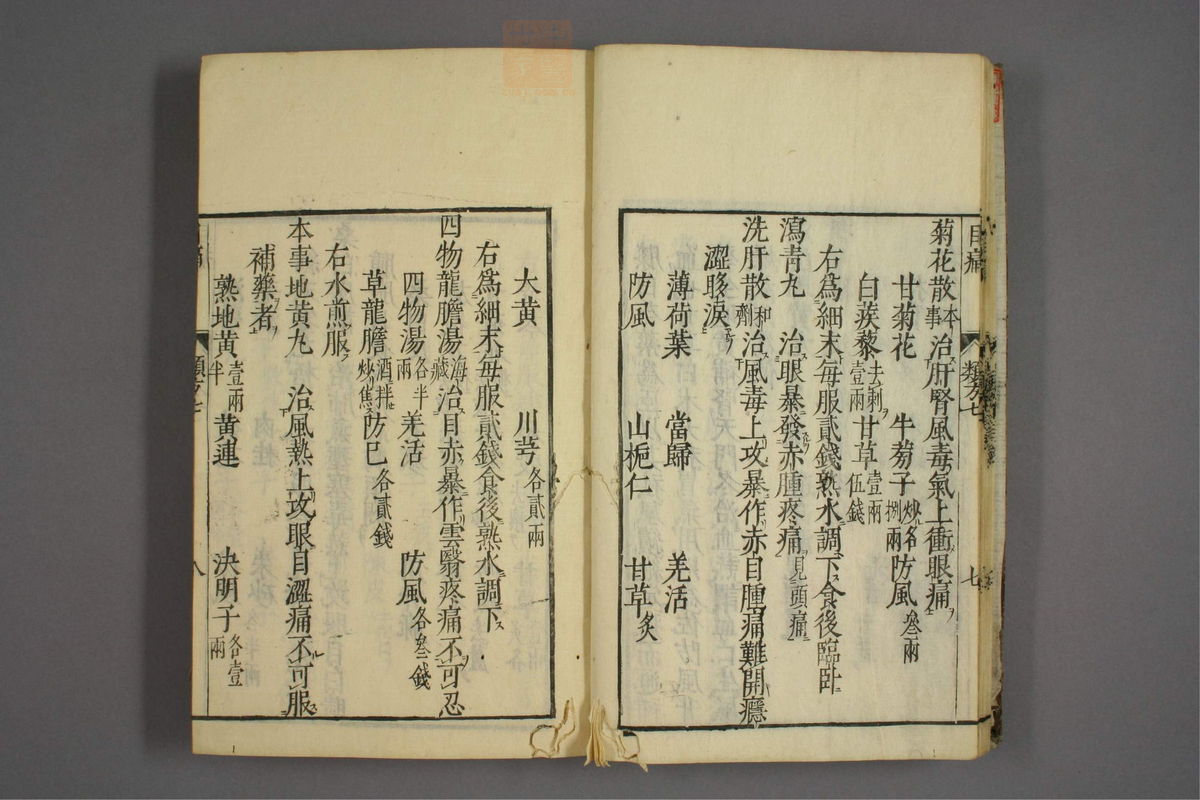 目痛 類方七 七
菊花散本事治肝腎風毒氣上衝眼痛
甘菊花 牛蒡子炒各捌兩防風叄兩
白蒺藜去刺壹兩甘草壹兩伍錢
右爲細末每服貳錢熟水調下食後臨卧
瀉青丸 治眼暴發赤腫疼痛見頭痛
洗肝散和劑治風毒上攻暴作赤目腫痛難開癮
澀眵淚
薄荷葉 當歸 羌活
防風 山梔仁 甘草炙
大黃 川芎各貳兩
右爲細末每服貳錢食後熟水調下
四物龍膽湯海藏治目赤暴作雲翳疼痛不可忍
四物湯各半兩 羌活 防風各叄錢
草龍膽酒拌炒焦防巳各貳錢
右水煎服
本事地黃丸 治風熱上攻眼目澀痛不可服
補藥者
熟地黃壹兩半黃連 決明子各壹兩
類方七 八